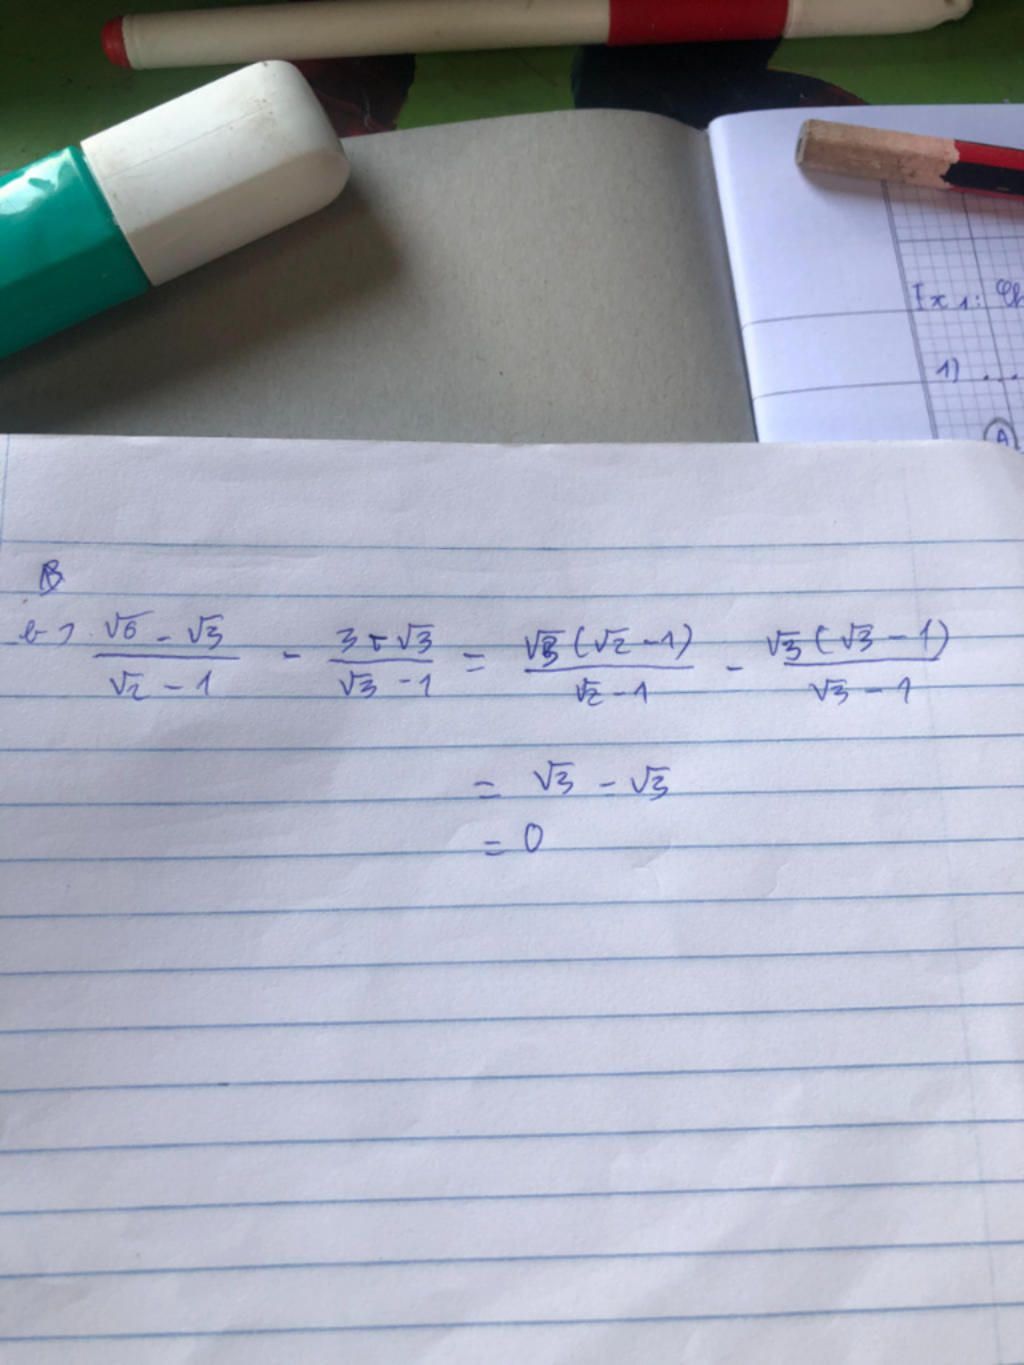 Ex 1:
1) ...
A
B
b) (√6 - √3)/(√2 - 1) - (3 - √3)/(√3 - 1) = √3(√2 - 1)/(√2 - 1) - √3(√3 - 1)/(√3 - 1)
= √3 - √3
= 0